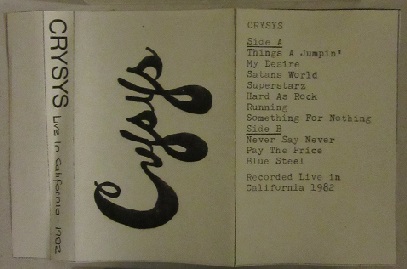 CRYSYS Live In California 1982
Crysys
CRYSYS
Side A
Things A Jumpin'
My Desire
Satans World
Superstarz
Hard As Rock
Running
Something For Nothing
Side B
Never Say Never
Pay The Price
Blue Steel
Recorded Live in
California 1982